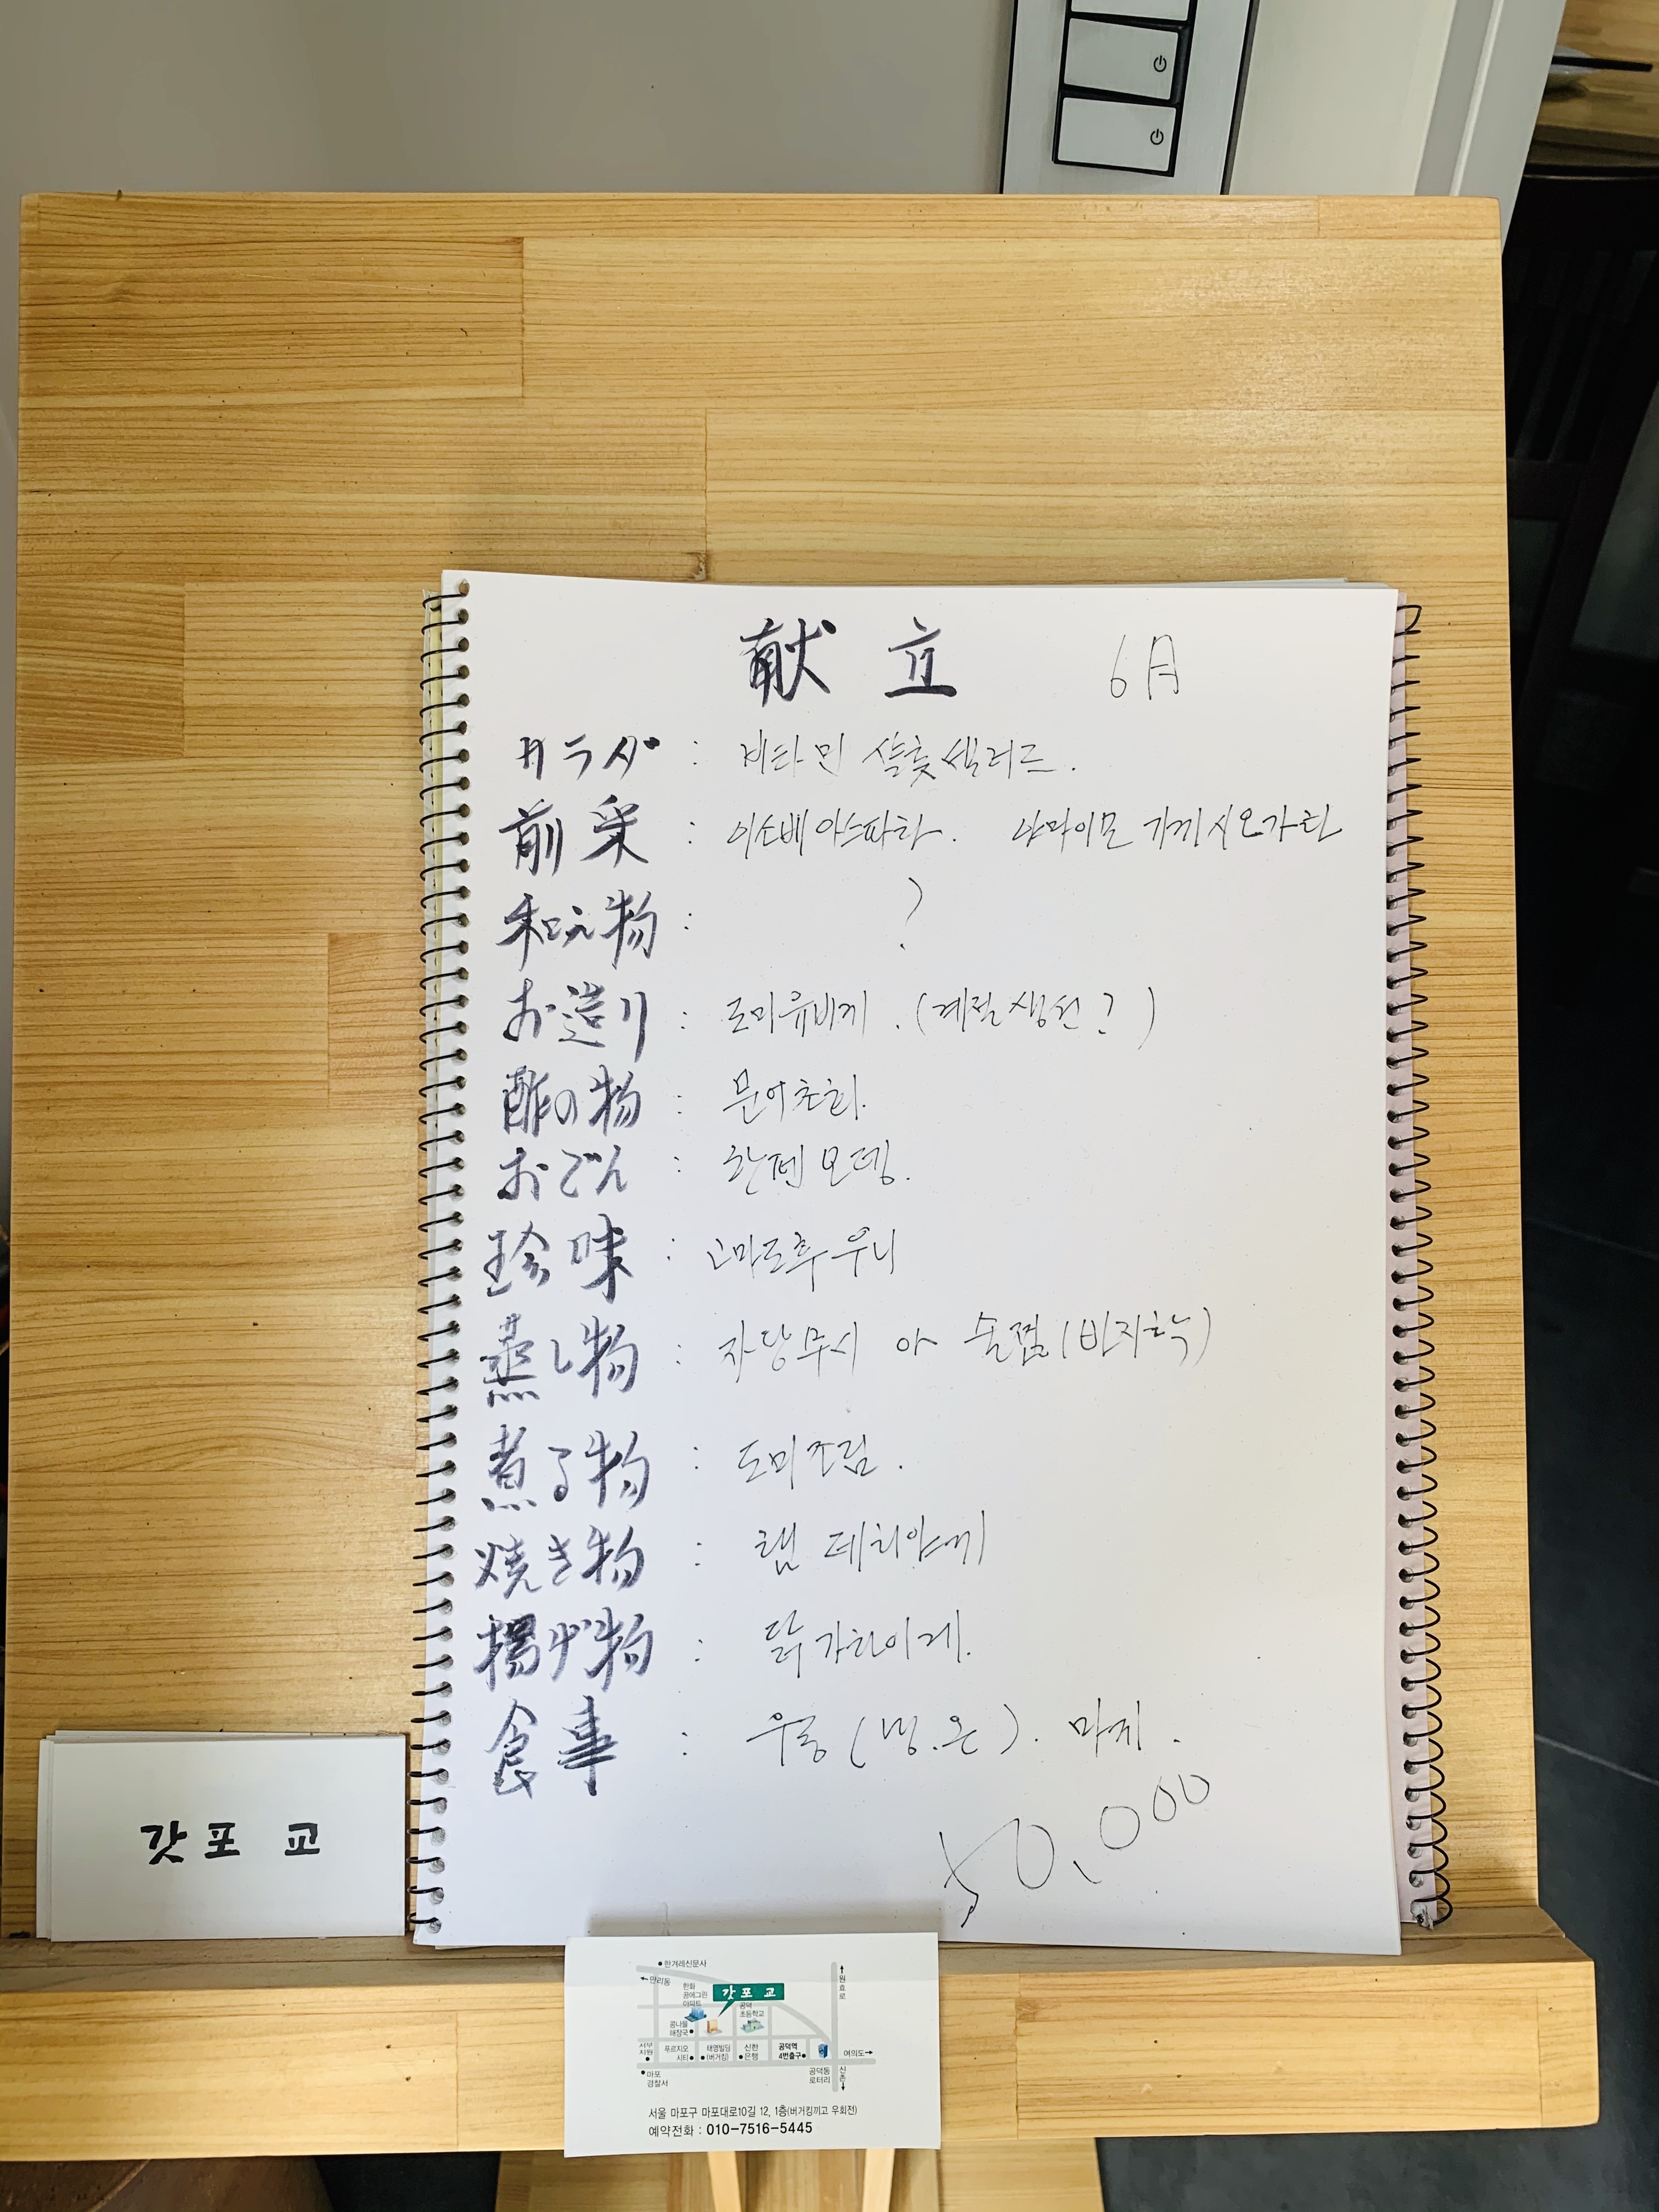 献立 6月
サラダ : 비타민 샬롯샐러드.
前采 : 이소베아스파라. 야마이모 가끼시오가라
和え物 : ?
お造り : 도미유비끼. (계절생선?)
酢の物 : 문어초회.
おでん : 한펜오뎅.
珍味 : 고마도후우니
蒸し物 : 자왕무시 or 술찜(바지락)
煮る物 : 도미조림.
焼き物 : 램 데리야끼
揚げ物 : 닭가라아게.
食事 : 우동(냉.온). 마끼.
50,000
갓포 교
한겨레신문사
만리동
한화
꿈에그린
아파트
갓포 교
공덕
초등학교
원효로
콩나물
해장국
서부
지원
푸르지오
시티
태영빌딩
(버거킹)
신한
은행
공덕역
4번출구
여의도
마포
경찰서
공덕동
로터리
신촌
서울 마포구 마포대로10길 12, 1층(버거킹끼고 우회전)
예약전화 : 010-7516-5445